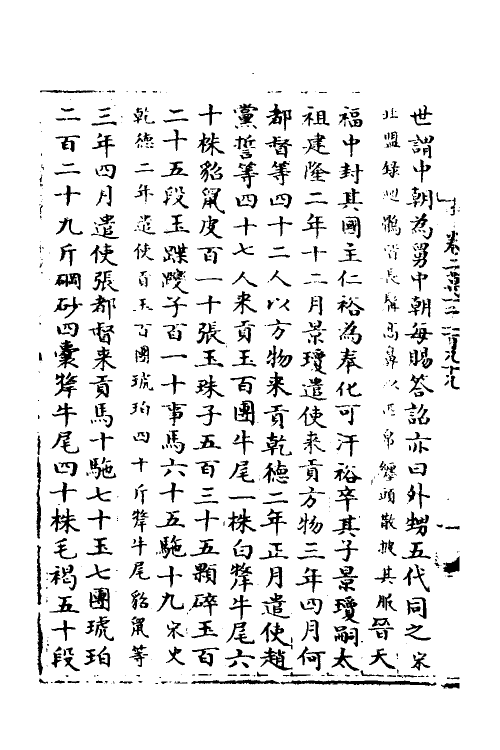 世謂中朝為舅中朝每賜答詔亦曰外甥五代同之宋
北盟錄迴鶻皆長髯高鼻以疋帛纏頭散披其服晉天
福中封其國主仁裕為奉化可汗裕卒其子景瓊嗣太
祖建隆二年十二月景瓊遣使來貢方物三年四月何
都督等四十二人以方物來貢乾德二年正月遣使趙
黨誓等四十七人來貢玉百團牛尾一株白犛牛尾六
十株貂鼠皮百一十張玉珠子五百三十五顆碎玉百
二十五段玉蹀躞子百一十事馬六十五駞十九宋史
乾德二年遣使貢玉百團琥珀四十斤犛牛尾貂鼠等
三年四月遣使張都督來貢馬十駞七十玉七團琥珀
二百二十九斤硇砂四囊犛牛尾四十株毛褐五十段